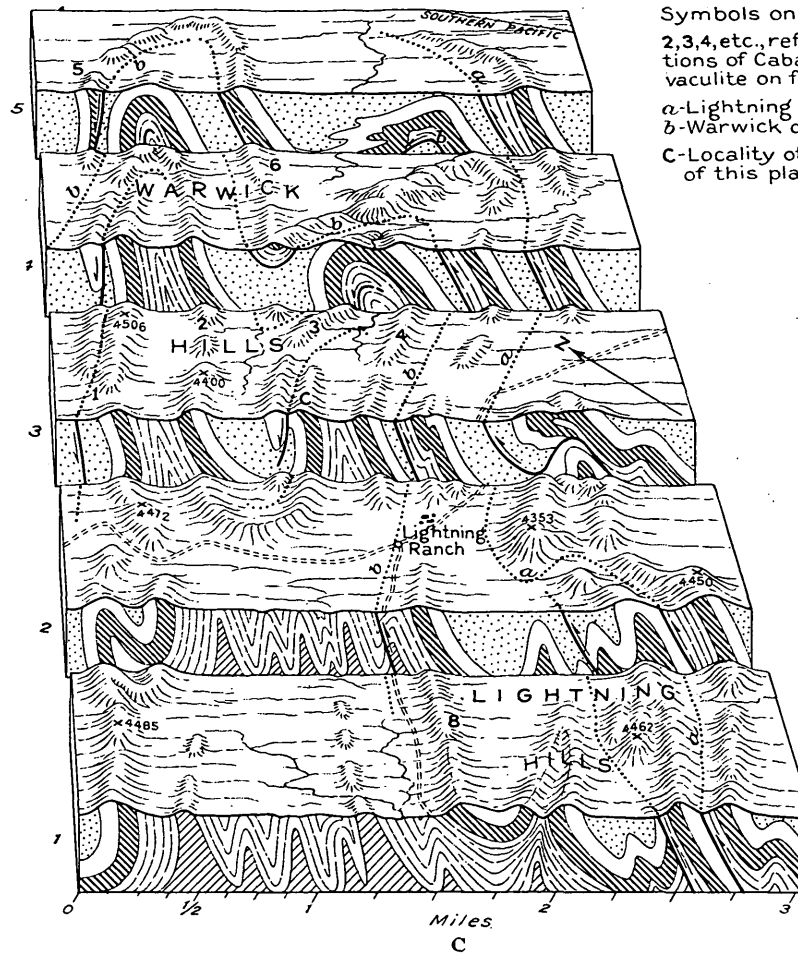 SOUTHERN PACIFIC
Symbols on
2,3,4, etc., ref
tions of Caba
vaculite on f
a-Lightning
b-Warwick c
C-Locality of
of this pla
5
b
a
5
b
b
6
WARWICK
b
4
4506
2
3
4
HILLS
4400
b
a
N
1
C
3
4472
4353
Lightning
Ranch
b
a
4450
2
LIGHTNING
4485
8
4462
a
HILLS
1
0
1/2
1
2
3
Miles
C